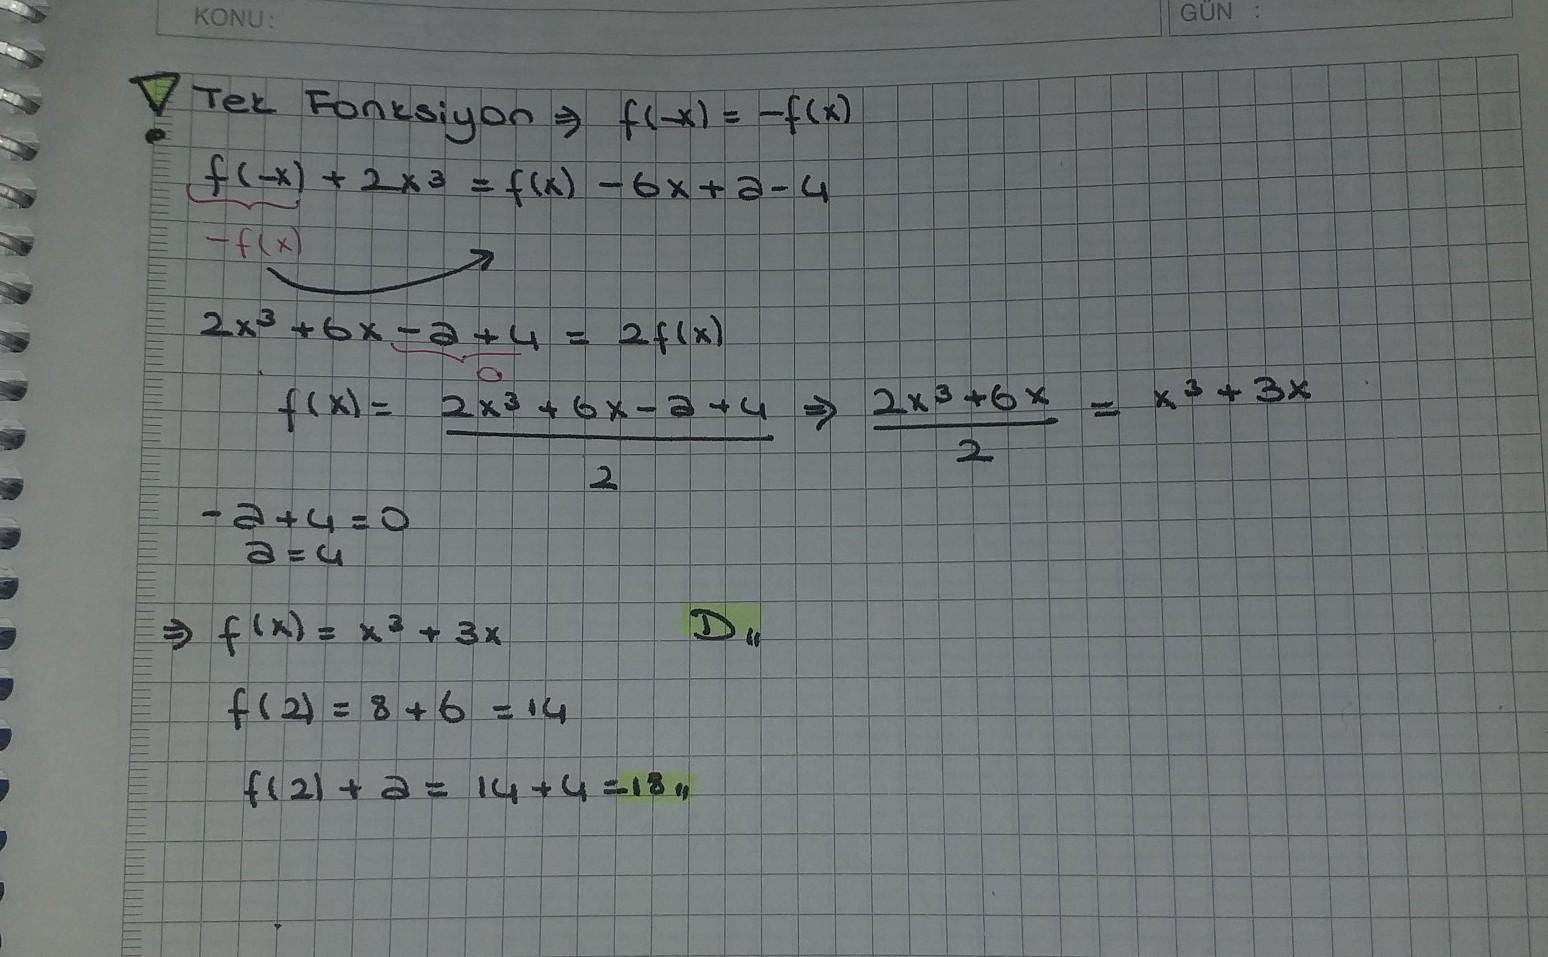 KONU: GÜN :
Tek Fonksiyon ⇒ f(-x) = -f(x)
f(-x) + 2x³ = f(x) - 6x + a - 4
-f(x)
2x³ + 6x - a + 4 = 2f(x)
0
f(x) = (2x³ + 6x - a + 4)/2 ⇒ (2x³ + 6x)/2 = x³ + 3x
- a + 4 = 0
a = 4
⇒ f(x) = x³ + 3x D,,
f(2) = 8 + 6 = 14
f(2) + a = 14 + 4 = 18,,